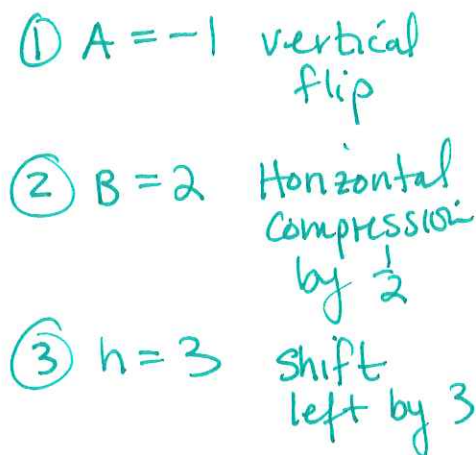 ① A = -1 vertical
flip
② B = 2 Horizontal
compression
by 1/2
③ h = 3 shift
left by 3